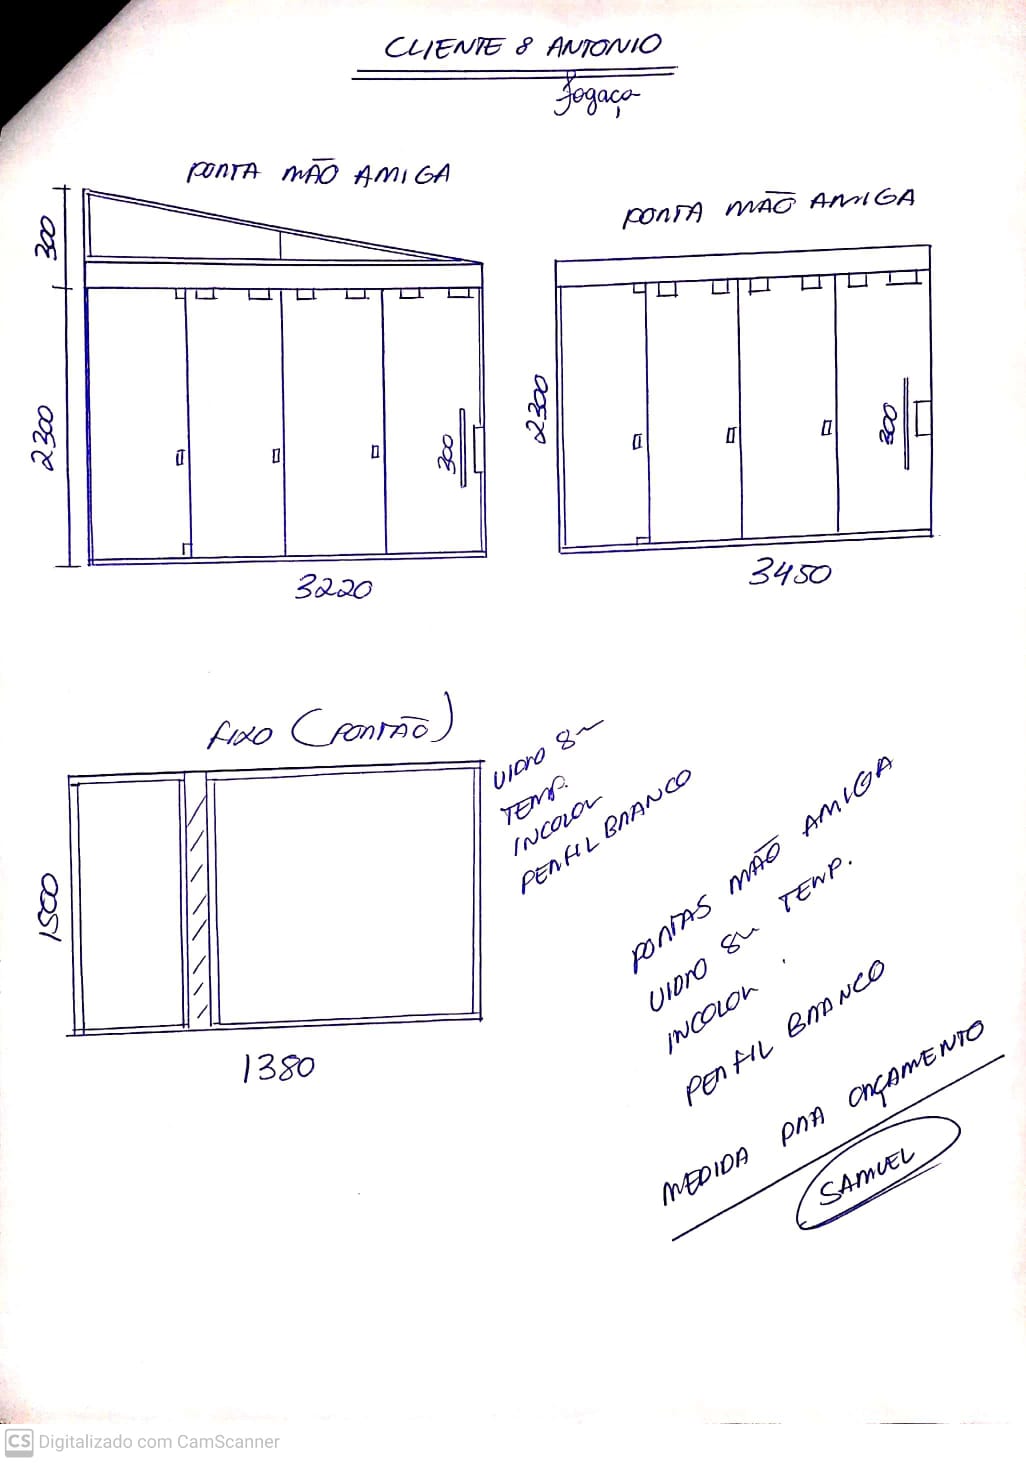 CLIENTE 8 ANTONIO
Fogaça
PORTA MÃO AMIGA
300
2300
300
3220
PORTA MÃO AMIGA
2300
300
3450
FIXO (PORTÃO)
1500
1380
VIDRO 8m
TEMP.
INCOLOR
PERFIL BRANCO
PORTAS MÃO AMIGA
VIDRO 8m TEMP.
INCOLOR.
PERFIL BRANCO
MEDIDA PRA ORÇAMENTO
SAMUEL
CS Digitalizado com CamScanner